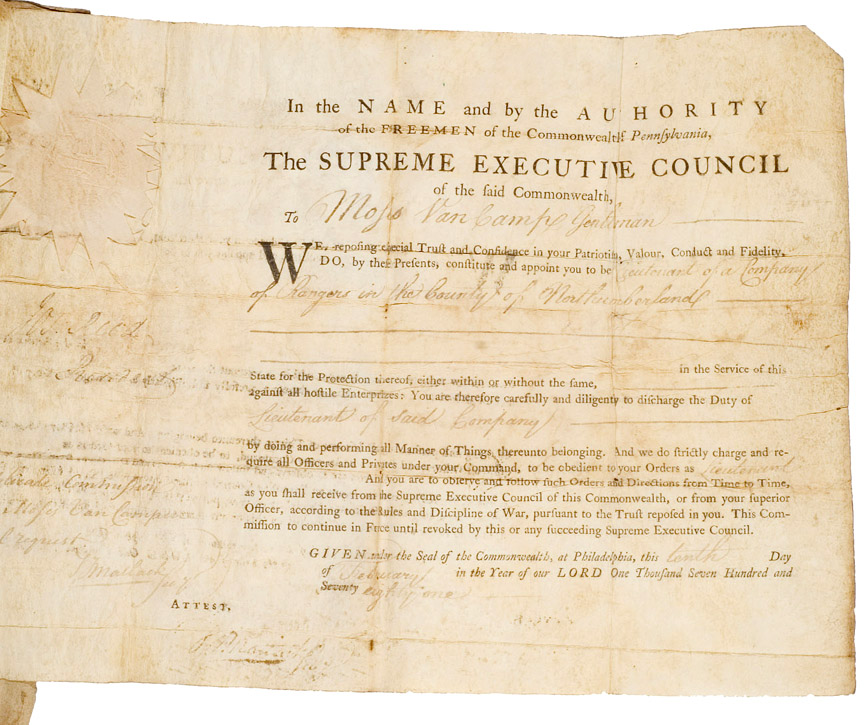 In the NAME and by the AUTHORITY
of the FREEMEN of the Commonwealth of Pennſylvania,
The SUPREME EXECUTIVE COUNCIL
of the ſaid Commonwealth,
To Moſes Van Camp Gentleman
WE, repoſing eſpecial Truſt and Confidence in your Patriotiſm, Valour, Conduct and Fidelity,
DO, by theſe Preſents, conſtitute and appoint you to be Lieutenant of a Company
of Rangers in the County of Northumberland
in the Service of this
State for the Protection thereof, either within or without the ſame,
againſt all hoſtile Enterprizes: You are therefore carefully and diligently to diſcharge the Duty of
Lieutenant of said Company
by doing and performing all Manner of Things thereunto belonging. And we do ſtrictly charge and re-
quire all Officers and Privates under your Command, to be obedient to your Orders as Lieutenant
And you are to obſerve and follow ſuch Orders and Directions from Time to Time,
as you ſhall receive from the Supreme Executive Council of this Commonwealth, or from your ſuperior
Officer, according to the Rules and Diſcipline of War, purſuant to the Truſt repoſed in you. This Com-
miſſion to continue in Force until revoked by this or any ſucceeding Supreme Executive Council.
GIVEN under the Seal of the Commonwealth, at Philadelphia, this tenth Day
of February in the Year of our LORD One Thouſand Seven Hundred and
Seventy eighty one
Jos. Reed
President
Commission
Moſes Van Campen
request
ATTEST,